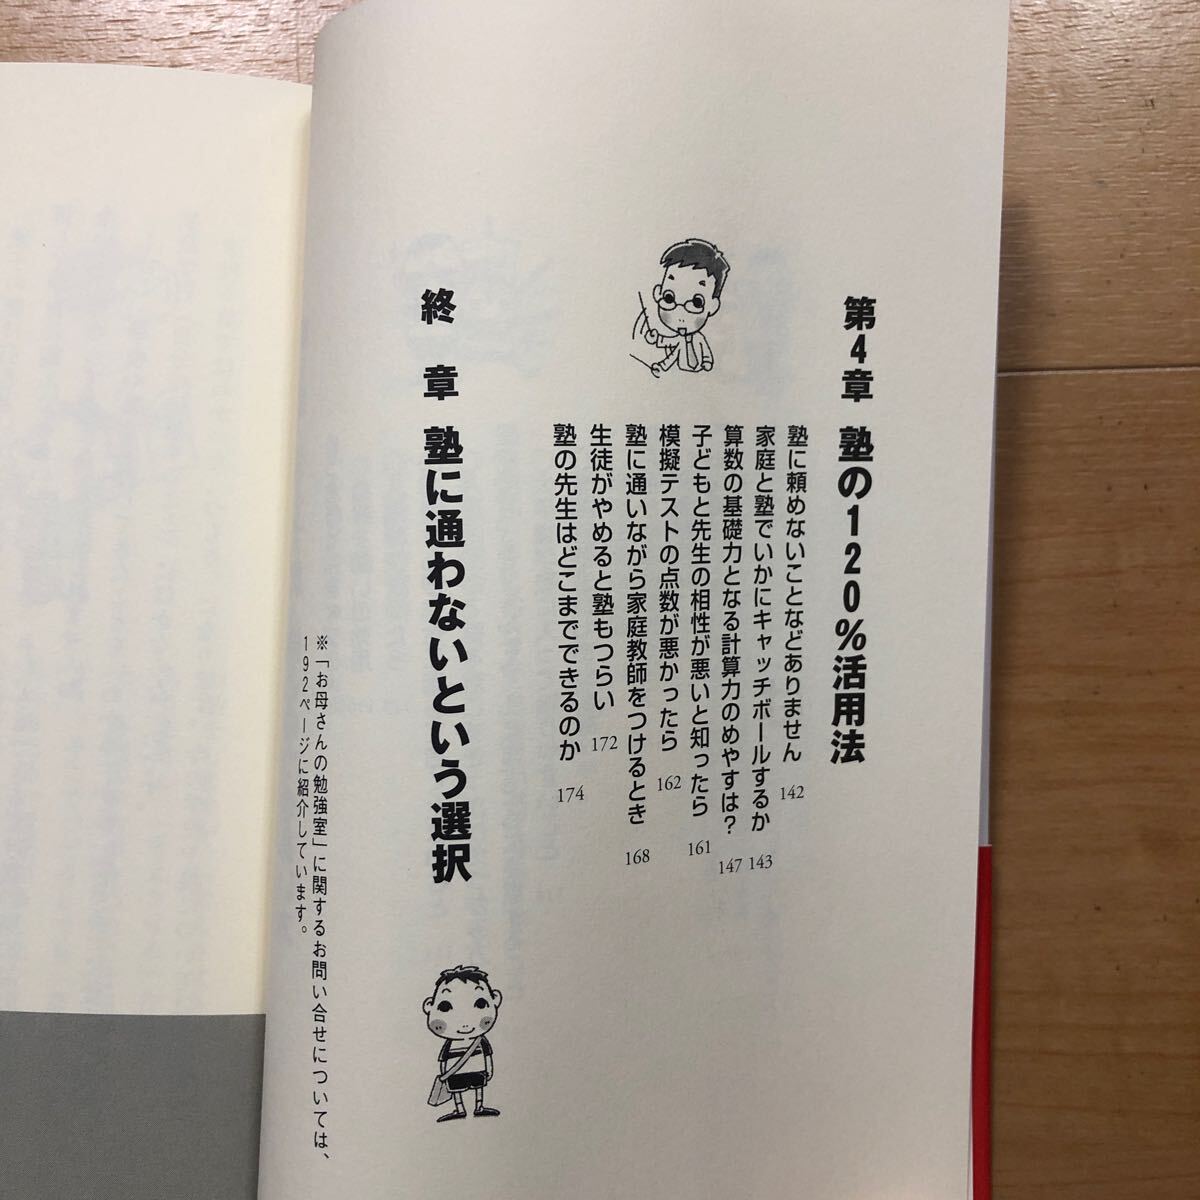 第4章 塾の120%活用法
塾に頼めないことなどありません 142
家庭と塾でいかにキャッチボールするか 143
算数の基礎力となる計算力のめやすは? 147
子どもと先生の相性が悪いと知ったら 161
模擬テストの点数が悪かったら 162
塾に通いながら家庭教師をつけるとき 168
生徒がやめると塾もつらい 172
塾の先生はどこまでできるのか 174
終章 塾に通わないという選択
※「お母さんの勉強室」に関するお問い合せについては、
192ページに紹介しています。